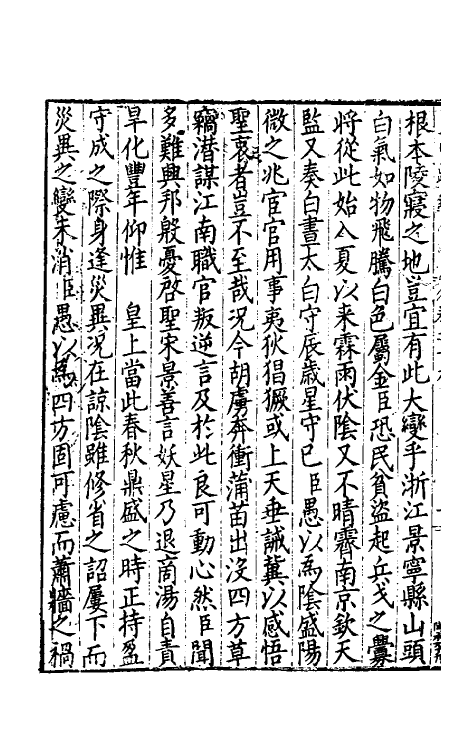 根本陵寢之地豈宜有此大變乎浙江景寧縣山頭
白氣如物飛騰白色屬金臣恐民貧盜起兵戈之釁
將從此始入夏以来霖雨伏陰又不晴霽南京欽天
監又奏白晝太白守辰歲星守巳臣愚以爲陰盛陽
微之兆宦官用事夷狄猖獗或上天垂誡冀以感悟
聖衷者豈不至哉况今胡虜奔衝蒲苗出沒四方草
竊潜謀江南職官叛逆言及於此良可動心然臣聞
多難興邦殷憂啓聖宋景善言妖星乃退商湯自責
旱化豐年仰惟　皇上當此春秋鼎盛之時正持盈
守成之際身逢災異况在諒陰雖修省之詔屢下而
災異之變未消臣愚以爲四方固可慮而蕭牆之禍